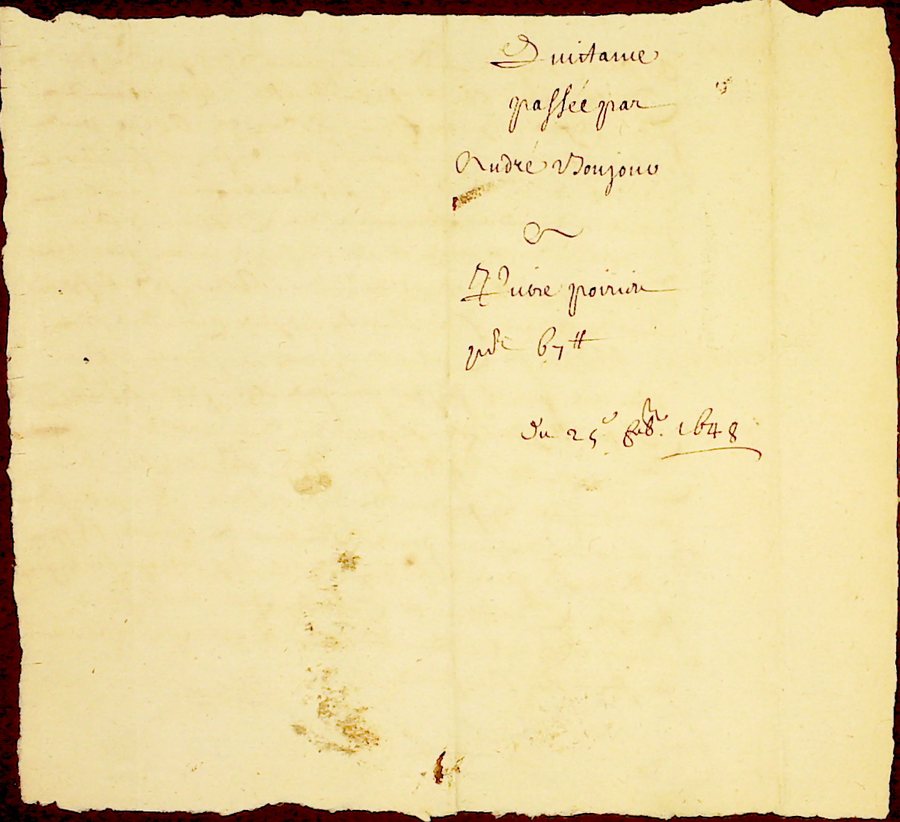 Quictance
passée par
André Bonjour
a
Pierre poirier
pr 67 ₶
du 25e 1648